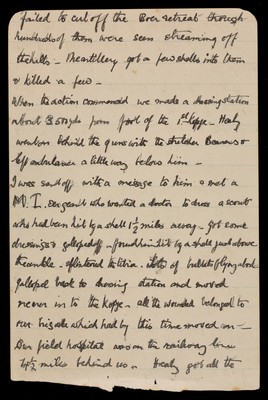 failed to cut off the Boer retreat though
hundreds of them were seen streaming off
the hills - The artillery got a few shells into them
& killed a few -
When the action commenced we made a dressing station
about 350 yds from foot of the 1st Kopje - Healy
went on behind the guns with the stretcher Bearers &
left ambulance a little way below him -
I was sent off with a message to him & met a
M.I. Sergeant who wanted a doctor to dress a scout
who had been hit by a shell 1½ miles away - got some
dressings & galloped off - found him hit by a shell just above
the ankle - splintered the tibia - lots of bullets flying about
galloped back to dressing station and moved
nearer in to the Kopje - all the wounded belonged to
our brigade which had by this time moved on -
Our field hospital was on the railway line
4½ miles behind us - Healy got all the